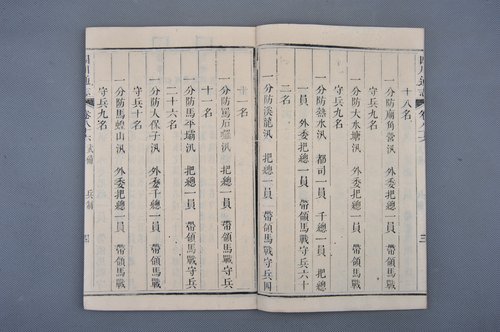 十八名
一分防廟角營汛　外委把總一員　帶領馬戰
守兵九名
一分防大水塘汛　外委把總一員　帶領馬戰
守兵九名
一分防熱水汛　都司一員　千總一員　把總
一員　外委把總一員　帶領馬戰守兵六十
二名
一分防溪龍汛　把總一員　帶領馬戰守兵四
十二名
十一名
一分防馬平壩汛　把總一員　帶領馬戰守兵
二十六名
一分防大保子汛　外委千總一員　帶領馬戰
守兵十名
一分防馬蝗山汛　外委把總一員　帶領馬戰
守兵九名
四川通志　卷八十六　武備　兵制　四